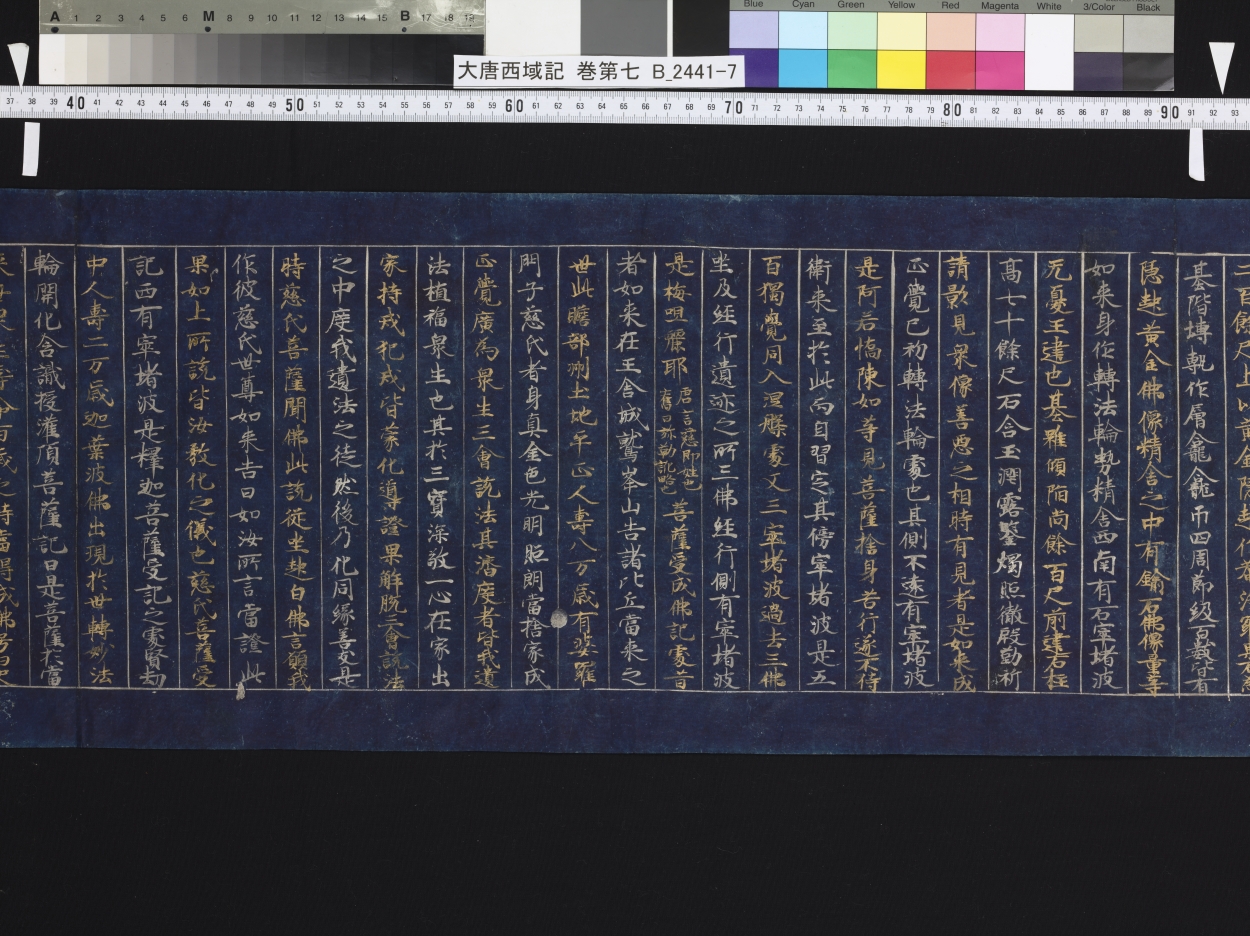 Blue Cyan Green Yellow Red Magenta White 3/Color Black
A 1 2 3 4 5 6 M 8 9 10 11 12 13 14 15 B 17 18 19
大唐西域記 巻第七 B_2441-7
37 38 39 40 41 42 43 44 45 46 47 48 49 50 51 52 53 54 55 56 57 58 59 60 61 62 63 64 65 66 67 68 69 70 71 72 73 74 75 76 77 78 79 80 81 82 83 84 85 86 87 88 89 90 91 92 93
二百餘尺上以黃金
基階塼軌作層龕龕帀四周節級百數皆有
隱起黃金佛像精舍之中有鍮石佛像量等
如来身作轉法輪勢精舍西南有石窣堵波
无憂王建也基雖傾陷尚餘百尺前建石柱
高七十餘尺石含玉潤露鑒燭照徹慇勤祈
請影見衆像善惡之相時有見者是如来成
正覺已初轉法輪處也其側不遠有窣堵波
是阿若憍陳如等見菩薩捨身苦行遂不侍
衛来至於此而自習定其傍窣堵波是五
百獨覺同入涅槃處又三窣堵波過去三佛
坐及経行遺迹之所三佛経行側有窣堵波
是梅呾麗耶唐言慈即姓也舊曰弥勒訛略也菩薩受成佛記處昔
者如来在王舍城鷲峯山告諸比丘當来之
世此瞻部洲土地平正人壽八万歳有婆羅
門子慈氏者身真金色光明照朗當捨家成
正覺廣為衆生三會說法其濟度者皆我遺
法植福衆生也其於三寶深敬一心在家出
家持戒犯戒皆蒙化導證果解脫三會說法
之中度我遺法之徒然後乃化同緣善友是
時慈氏菩薩聞佛此說從坐起白佛言願我
作彼慈氏世尊如来告曰如汝所言當證此
果如上所說皆汝教化之儀也慈氏菩薩受
記西有窣堵波是釋迦菩薩受記之處賢劫
中人壽二万歳迦葉波佛出現於世轉妙法
輪開化含識授灌頂菩薩記曰是菩薩於當